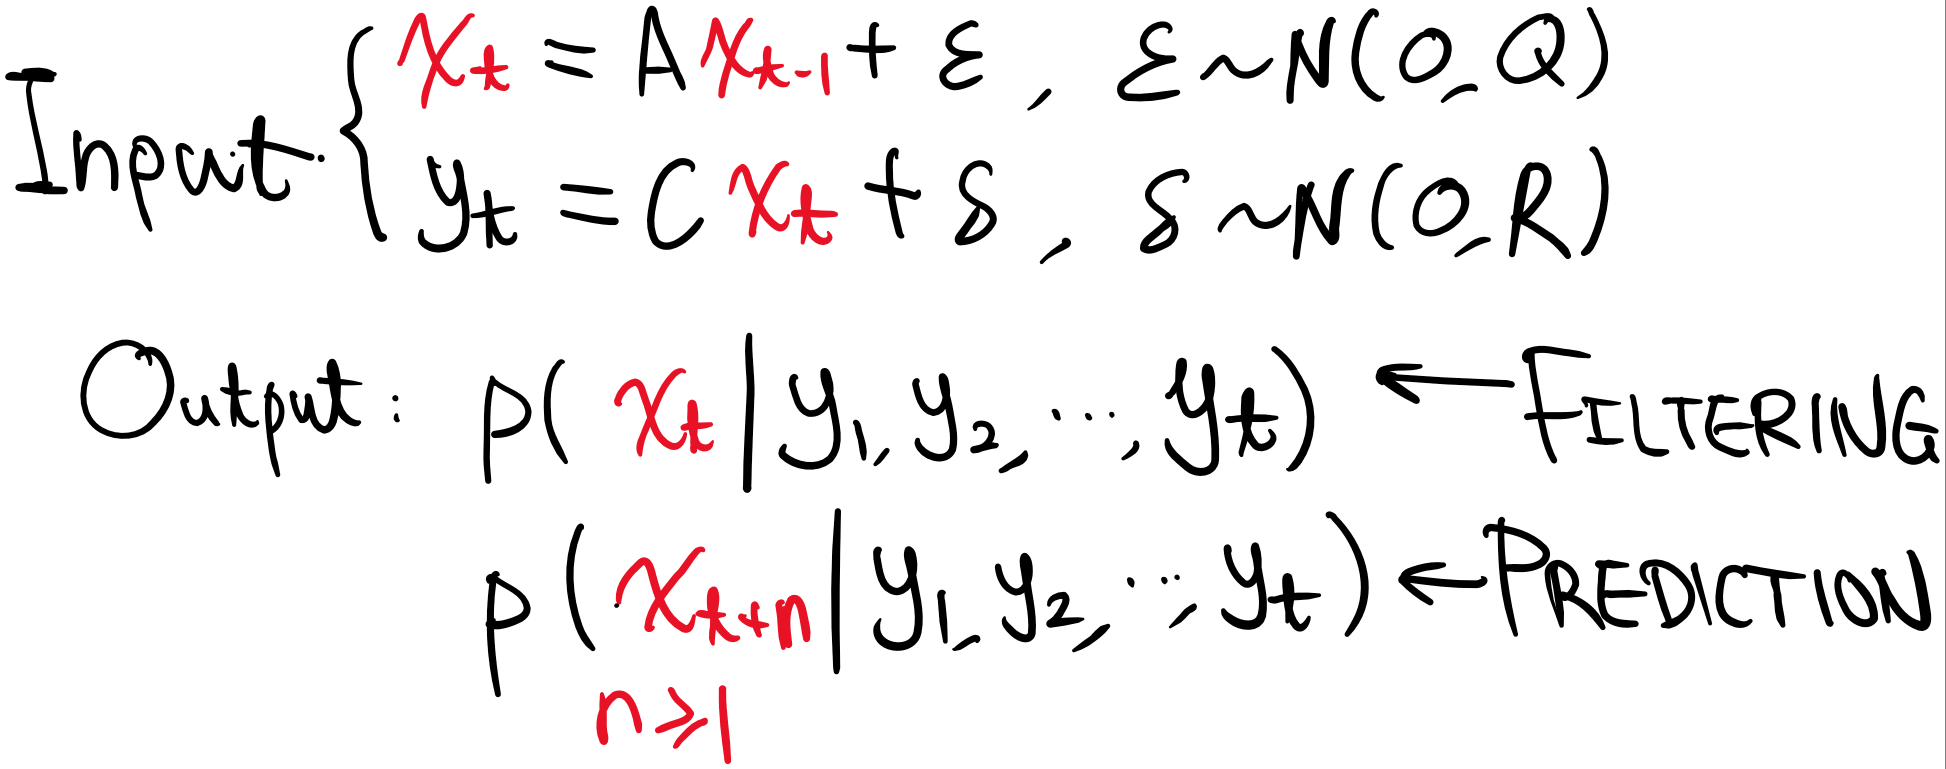 Input { x_t = A x_{t-1} + ε , ε ~ N(0, Q)
y_t = C x_t + δ , δ ~ N(0, R)
Output : p( x_t | y_1, y_2, ..., y_t) ← FILTERING
p( x_{t+n} | y_1, y_2, ..., y_t) ← PREDICTION
n ⩾ 1